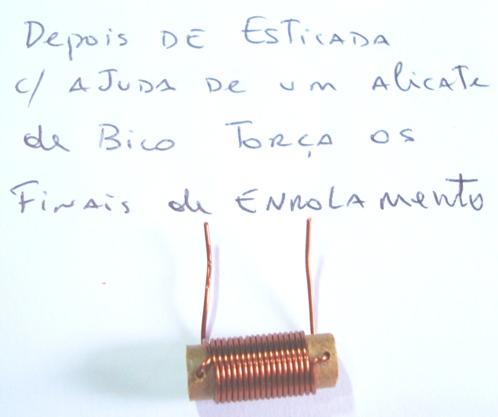 Depois DE ESTICADA
c/ AJUDA De um Alicate
de Bico TORÇA os
FINAIS de ENROLAMENTO